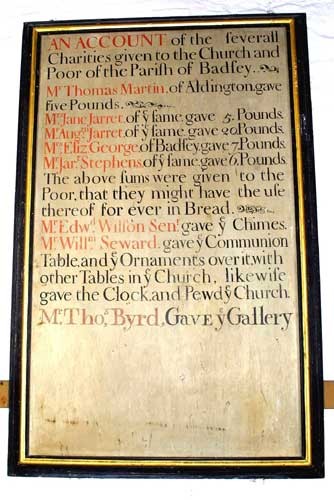 AN ACCOUNT of the severall
Charities given to the Church and
Poor of the Parish of Badsey.
Mr Thomas Martin, of Aldington, gave
five Pounds.
Mrs Jane Jarret, of ye same, gave 5: Pounds.
Mr Augn Jarret, of ye same, gave 20 Pounds.
Mrs Eliz George, of Badsey, gave 7 Pounds.
Mr Jars Stephens, of ye same, gave 6 Pounds.
The above sums were given to the
Poor, that they might have the use
thereof for ever in Bread.
Mr Edwd Wilson Senr gave ye Chimes.
Mr Willm Seward, gave ye Communion
Table, and ye Ornaments over it, with
other Tables in ye Church, likewise
gave the Clock, and Pewd ye Church.
Mr Thos Byrd, GAVE ye Gallery